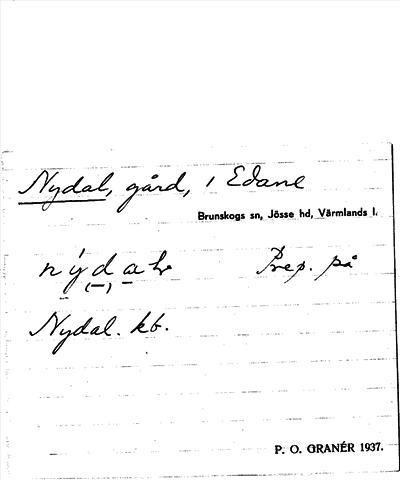 Nydal, gård, i Edane
Brunskogs sn, Jösse hd, Värmlands l.
Prep. på
Nydal. kb.
P. O. GRANÉR 1937.